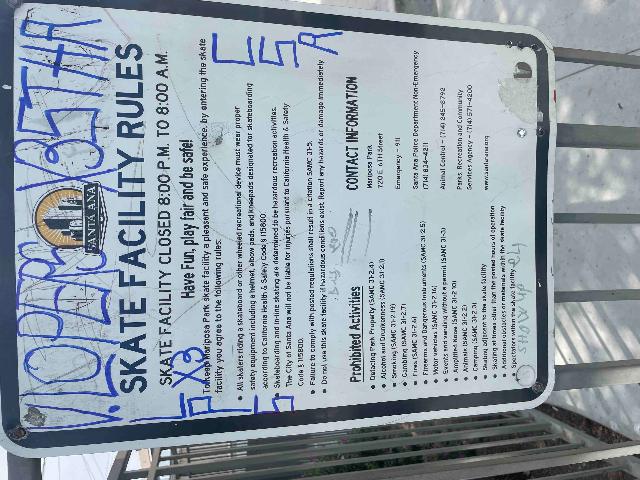 SANTA ANA
SKATE FACILITY RULES
SKATE FACILITY CLOSED 8:00 P.M. TO 8:00 A.M.
Have Fun, play fair and be safe!
Mariposa Park, skate facility a pleasant and safe experience, by entering the skate
facility you agree to the following rules:
• All skaters riding a skateboard or other wheeled recreational device must wear proper
safety equipment including a helmet, elbow pads, and kneepads designated for skateboarding
according to California Health & Safety Code § 115800.
Skateboarding and in-line skating are determined to be hazardous recreation activities.
The City of Santa Ana will not be liable for injuries pursuant to California Health & Safety
Code § 115800.
• Failure to comply with posted regulations shall result in a citation SAMC 31-5.
• Do not use this skate facility if hazardous conditions exist. Report any hazards or damage immediately
Prohibited Activities
• Defacing Park Property (SAMC 31-2.4)
• Alcohol and Drunkenness (SAMC 31-2.1)
• Smoking (SAMC 31-2.19)
• Climbing (SAMC 31-2.7)
• Fires (SAMC 31-2.6)
• Firearms and Dangerous Instruments (SAMC 31-2.5)
• Motor vehicles (SAMC 31-2.14)
• Events and vending without a permit (SAMC 31-3)
• Amplified Noise (SAMC 31-2.10)
• Animals (SAMC 31-2.2)
• Camping (SAMC 31-2.3)
• Skating adjacent to the skate facility
• Skating at times other than the posted hours of operation
• Additional obstacles or materials within the skate facility
• Spectators within the skate facility
CONTACT INFORMATION
Mariposa Park
720 E. 6TH Street
Emergency - 911
Santa Ana Police Department Non-Emergency
(714) 834-4211
Animal Control - (714) 245-8792
Parks, Recreation and Community
Services Agency - (714) 571-4200
www.santaana.org